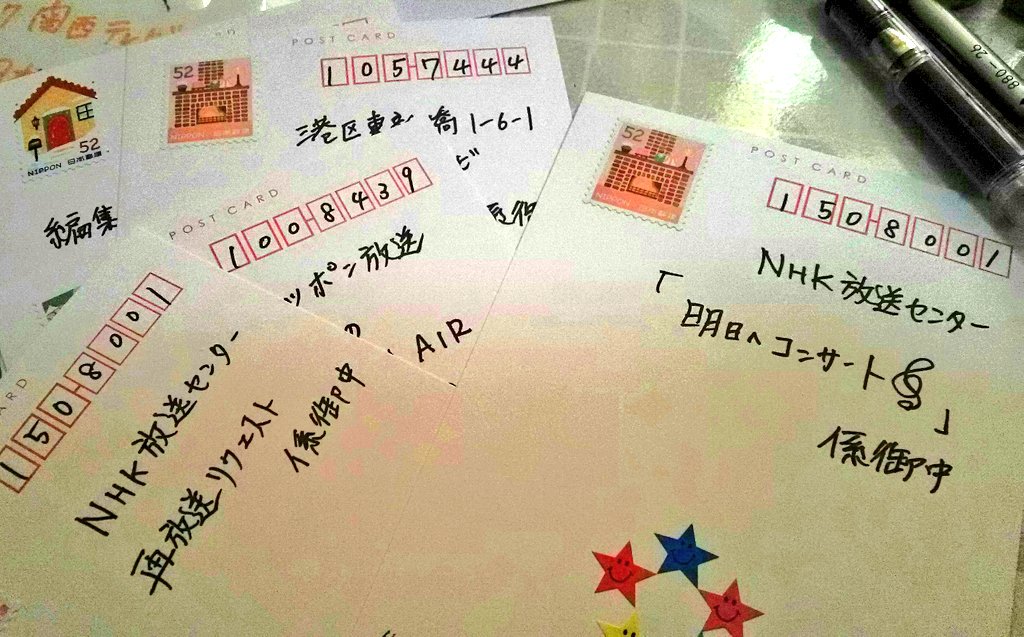 関西テレビ
POST CARD
52
1057444
港区東新橋1-6-1
52
NIPPON 日本郵便
編集
POST CARD
1008439
ッポン放送
AIR
係御中
1508001
NHK放送センター
再放送リクエスト
係御中
52
NIPPON 日本郵便
POST CARD
1508001
NHK放送センター
「明日へコンサート」
係御中
880-26